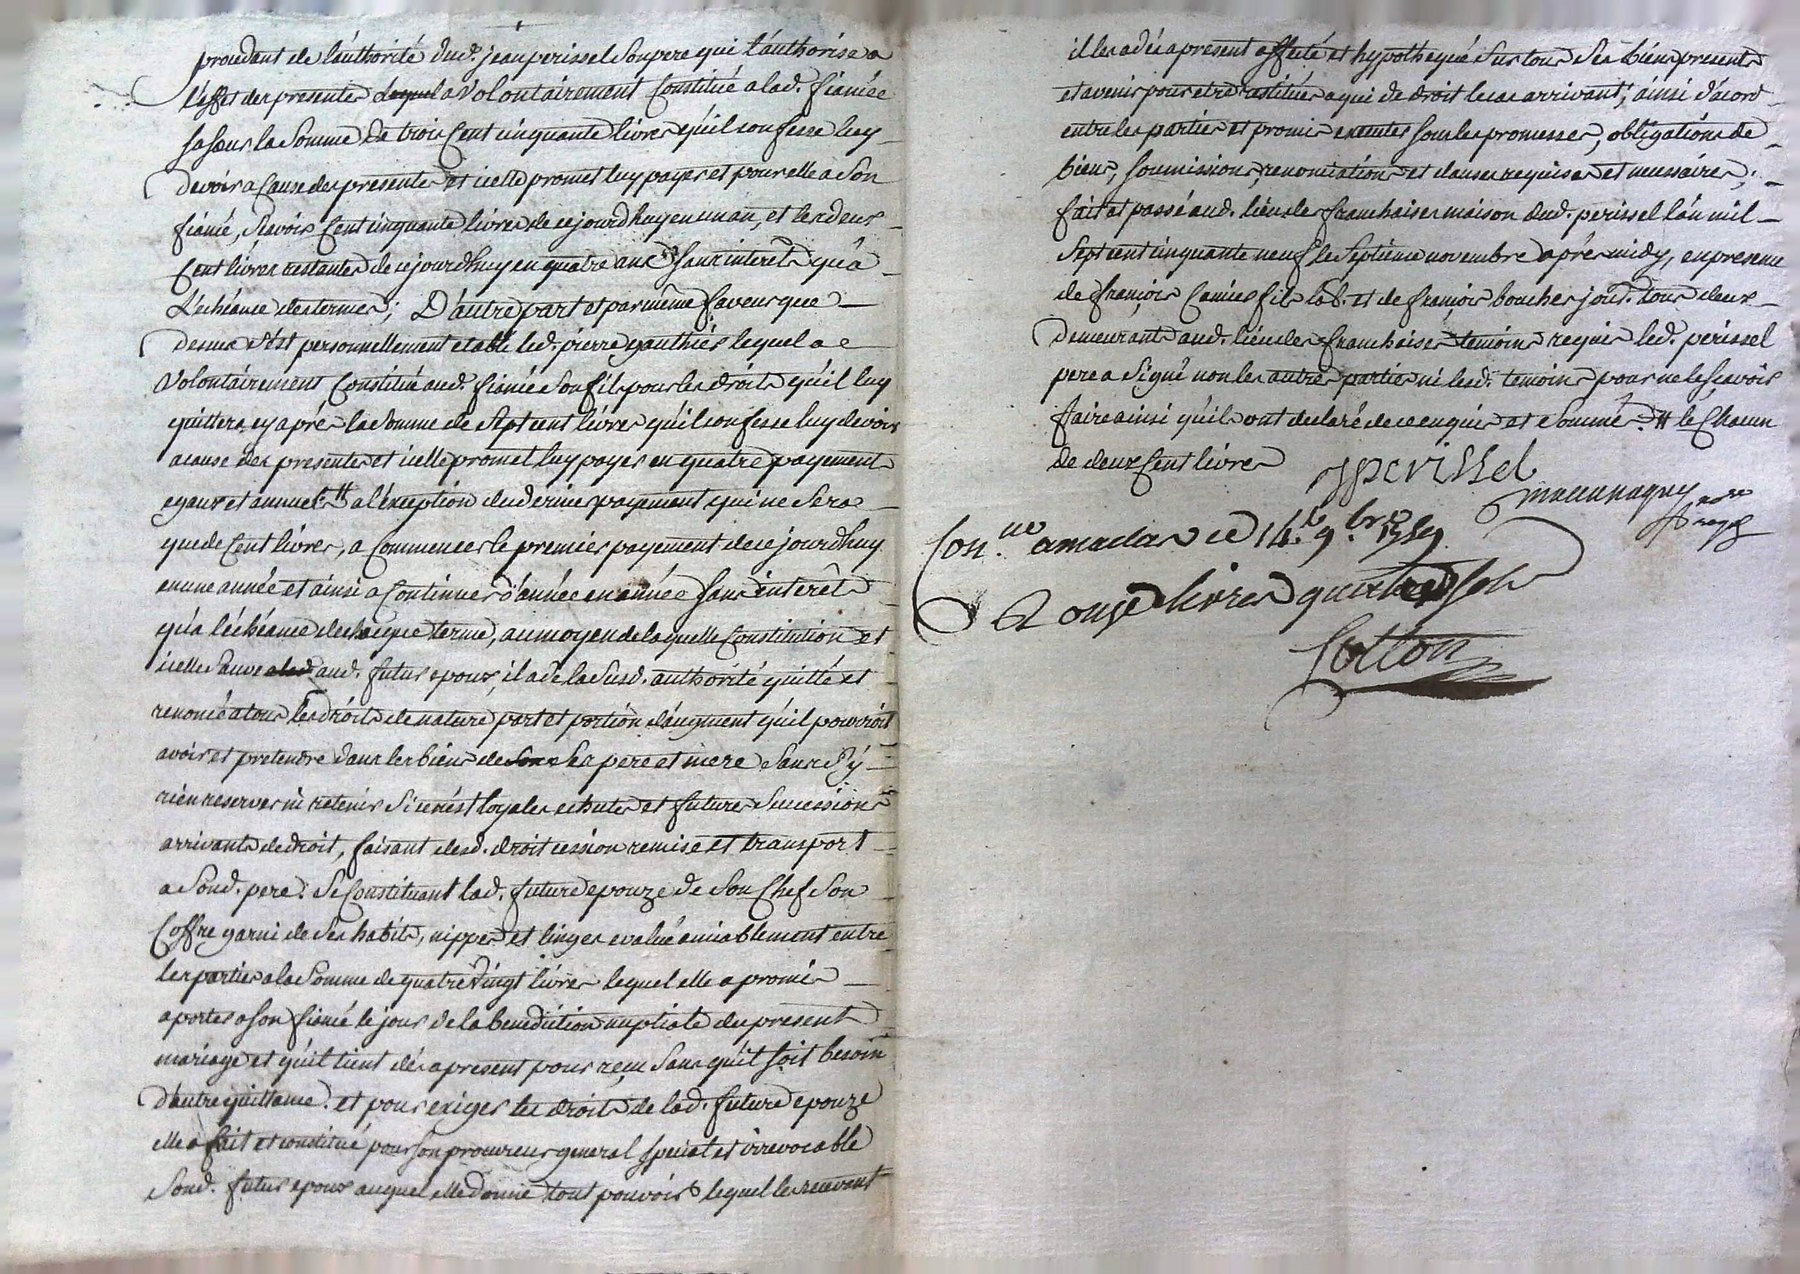 procedant de l'authorité dud. jean perissel son pere qui l'authorise a
l'effet des presentes lequel a volontairement Constitué a lad. fiancée
sa sœur la somme de trois Cent cinquante livres qu'il confesse luy
devoir a Cause des presentes et icelle promet luy payer et pour elle a son
fiancé, scavoir Cent cinquante livres de ce jourdhuy en un an, et les deux
Cent livres restantes de ce jourdhuy en quatre ans sans interêt qu'a
l'echéance des termes; D'autre part et par même faveur que
dessus s'est personnellement etabli led. pierre gauthier lequel a
volontairement Constitué aud. fiancé son fils pour les droits qu'il luy
quittera cy aprés la somme de sept cent livres qu'il confesse luy devoir
a cause des presentes et icelle promet luy payer en quatre payements
egaux et annuels # a l'exception du dernier payement qui ne sera
que de Cent livres, a Commencer le premier payement de ce jourdhuy
en une année et ainsi a Continuer d'année en année sans interêts
qu'a l'échéance de chaque terme, au moyen de laquelle Constitution et
icelle sauve aud. futur epoux, il a de la susd. authorité quitté et
renoncé a tous les droits de nature part et portion d'augment qu'il pourroit
avoir et pretendre dans les biens de ses pere et mere sans s'y
rien reserver ni retenir si ce n'est loyales echutes et futures successions
arrivants de droit, faisant desd. droit cession remise et transport
a sond. pere. Se Constituant lad. future epouze de son Chef son
Coffre garni de ses habits, nippes et linges evalué amiablement entre
les parties a la somme de quatre vingt livres lequel elle a promis
aporter a son fiancé le jour de la benediction nuptiale du present
mariage et qu'il tient dés a present pour reçu sans qu'il soit besoin
d'autre quittance. et pour exiger les droits de lad. future epouze
elle a fait et constitué pour son procureur general special et irrevocable
sond. futur epoux auquel elle donne tout pouvoir lequel les recevant
il les a dés a present affecté et hypothequé sur tous ses biens presents
et avenir pour etre restitués a qui de droit le cas arrivant; ainsi d'acord
entre les parties et promis executer sous les promesses, obligations de
biens, soumissions, renonciations et clauses requises et necessaires,
fait et passé aud. lieu des franchaises maison dud. perissel l'an mil
sept cent cinquante neuf le septieme novembre aprés midy, en presence
de françois Camier fils lab. et de françois boucher jour. tous deux
demeurants aud. lieu des franchaises temoins requis led. perissel
pere a signé non les autres parties ni lesd. temoins pour ne le scavoir
faire ainsi qu'ils ont declaré de ce enquis et sommé. # le Chacun
de deux Cent livres
jperissel
no.re
Con.lle a maclas ce 14.e 9.bre 1759
R onze livres quatre sols
Cotton